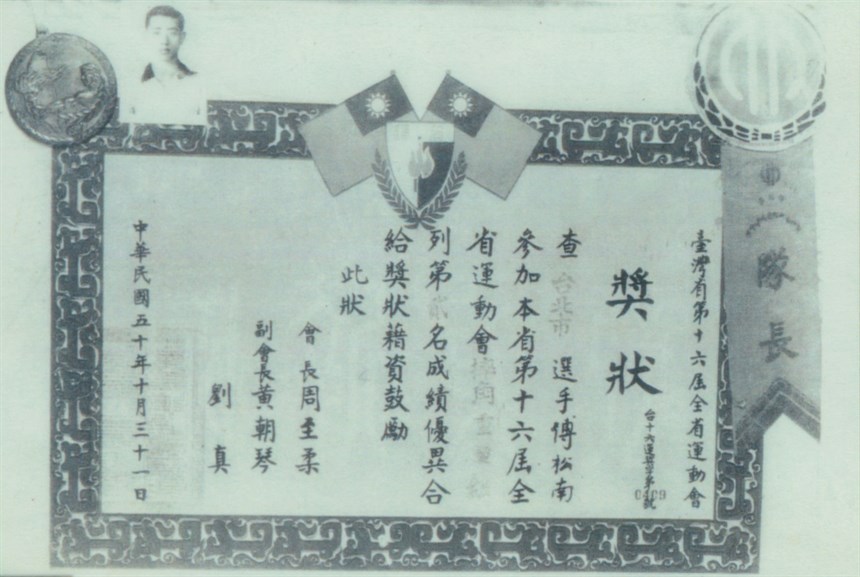 臺灣省第十六屆全省運動會
獎狀
台十六運獎字第0409號
查台北市選手傅松南
參加本省第十六屆全
省運動會摔角
列第貳名成績優異合
給獎狀藉資鼓勵
此狀
會長周至柔
副會長黃朝琴
劉真
中華民國五十年十月三十一日
隊長